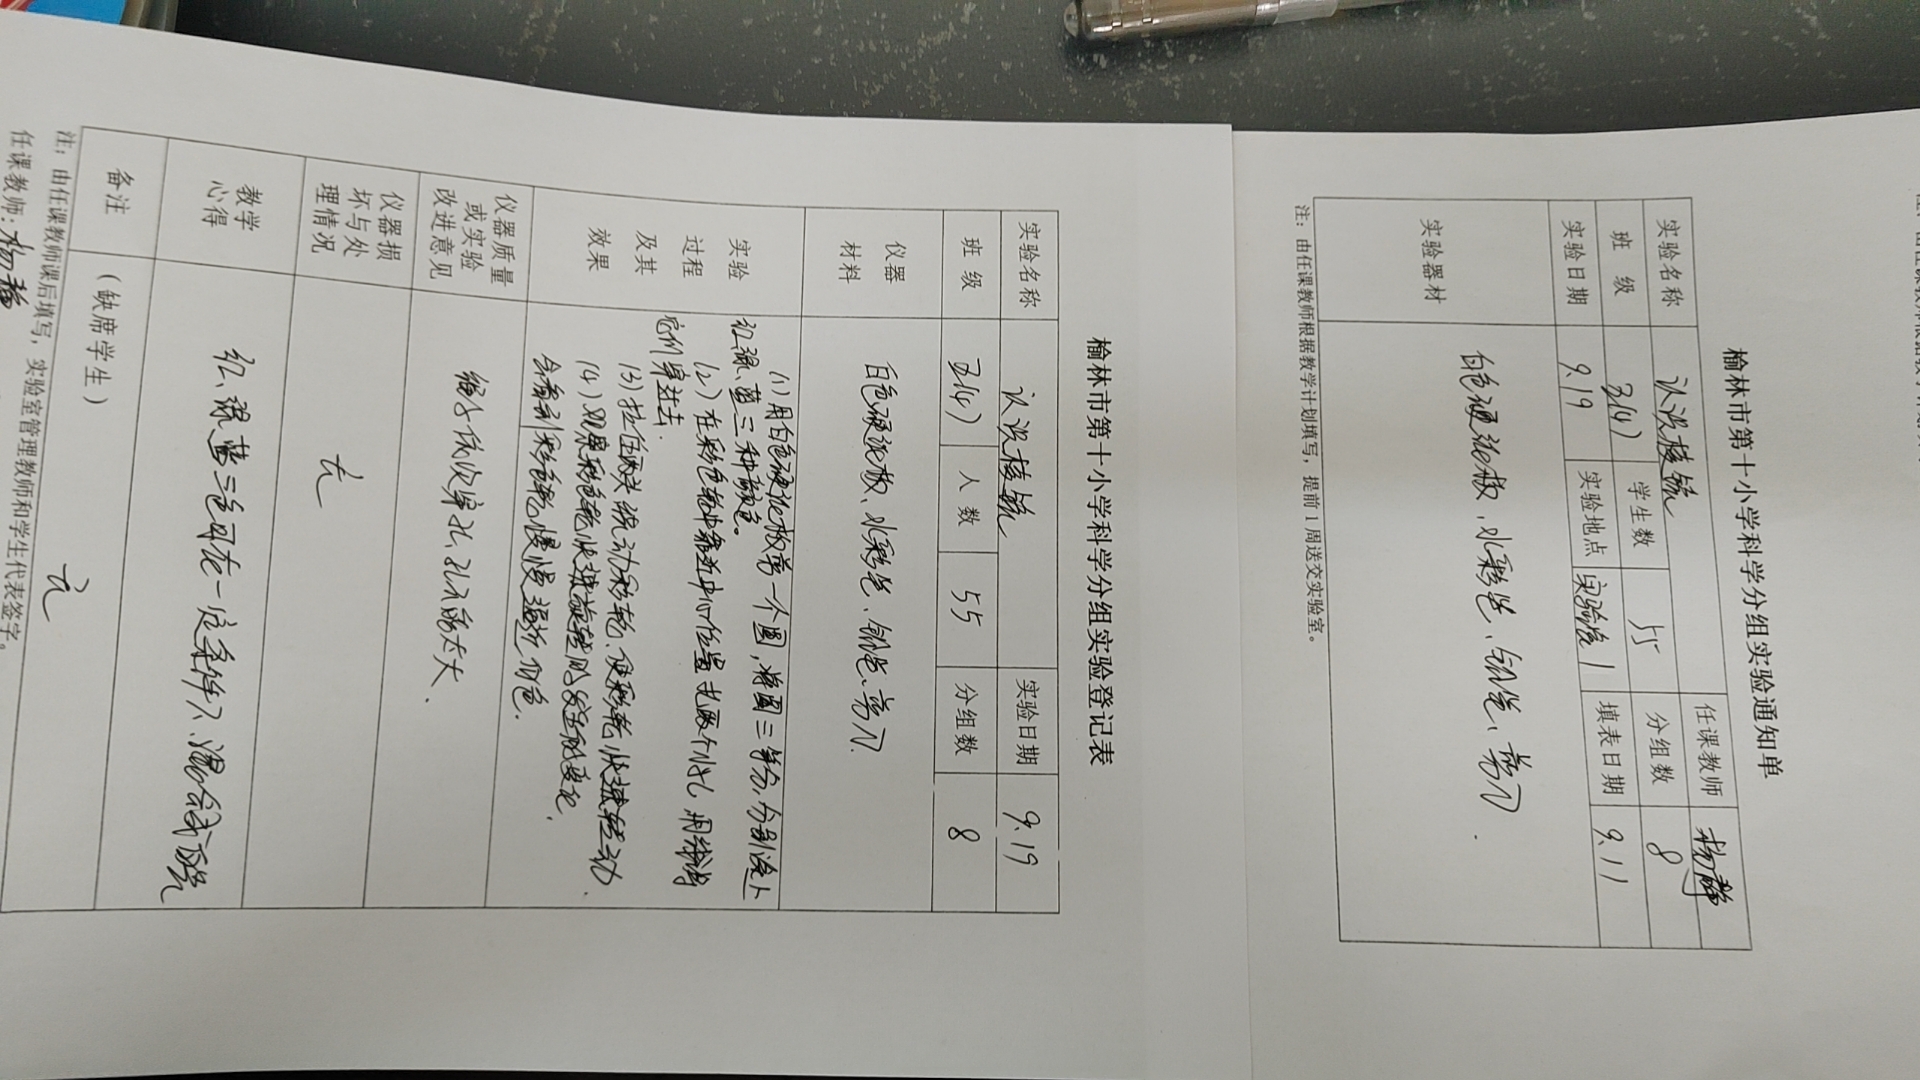 榆林市第十小学科学分组实验通知单
实验名称 认识棱镜 任课教师 杨静
班 级 3(4) 学生数 55 分组数 8
实验日期 9.19 实验地点 实验室1 填表日期 9.11
实验器材 白色硬纸板、水彩笔、铅笔、剪刀.
注：由任课教师根据教学计划填写，提前1周送交实验室。
榆林市第十小学科学分组实验登记表
实验名称 认识棱镜 实验日期 9.19
班 级 3(4) 人 数 55 分组数 8
仪器材料 白色硬纸板、水彩笔、铅笔、剪刀.
实验过程及其效果
(1)用白色硬纸板 一个圆,将圆三等分,分别涂上
红、绿、蓝三种颜色。
(2)在彩色轮中靠近中心位置 两个小孔,用线绳
它们穿进去.
(3)拉住两头绕动彩轮,使彩轮快速转动.
(4)观察彩色轮快速旋转时 变化,
会看到彩色轮慢慢逼近白色.
仪器质量或实验改进意见 绳子依次穿孔,孔不需太大.
仪器损坏与处理情况 无
教学心得 红、绿、蓝三色可在一定条件下、混合成白光
备注 （缺席学生） 无
注：由任课教师课后填写，实验室管理教师和学生代表签字。
任课教师:杨静